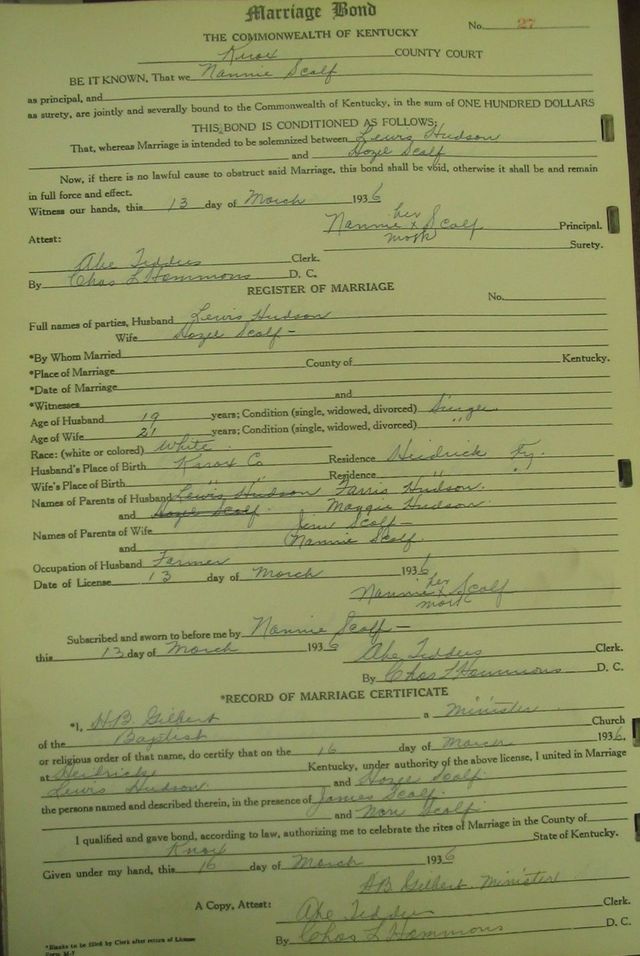 Marriage Bond
No. 27
THE COMMONWEALTH OF KENTUCKY
Knox COUNTY COURT
BE IT KNOWN, That we Nannie Scalf
as principal, and
as surety, are jointly and severally bound to the Commonwealth of Kentucky, in the sum of ONE HUNDRED DOLLARS
THIS BOND IS CONDITIONED AS FOLLOWS:
That, whereas Marriage is intended to be solemnized between Lewis Hudson
and Hozel Scalf
Now, if there is no lawful cause to obstruct said Marriage, this bond shall be void, otherwise it shall be and remain
in full force and effect.
Witness our hands, this 13 day of March 1936
her
Nannie x Scalf Principal.
mark
Attest: Surety.
Abe Tedders Clerk.
By Chas L Hammons D. C.
REGISTER OF MARRIAGE
No.
Full names of parties, Husband Lewis Hudson
Wife Hozel Scalf -
*By Whom Married
*Place of Marriage County of Kentucky.
*Date of Marriage
*Witnesses and
Age of Husband 19 years; Condition (single, widowed, divorced) Single
Age of Wife 21 years; Condition (single, widowed, divorced) "
Race: (white or colored) White
Husband's Place of Birth Knox Co Residence Heidrick Ky.
Wife's Place of Birth " " Residence " "
Names of Parents of Husband Lewis Hudson Farris Hudson.
and Hozel Scalf. Maggie Hudson.
Names of Parents of Wife Jim Scalf -
and Nannie Scalf.
Occupation of Husband Farmer
Date of License 13 day of March 1936
her
Nannie x Scalf
mark
Subscribed and sworn to before me by Nannie Scalf -
this 13 day of March 1936
Abe Tedders Clerk.
By Chas L Hammons D. C.
*RECORD OF MARRIAGE CERTIFICATE
*I, HB Gilbert a Minister
of the Baptist Church
or religious order of that name, do certify that on the 16 day of March 1936.
at Heidrick Kentucky, under authority of the above license, I united in Marriage
Lewis Hudson and Hozel Scalf.
the persons named and described therein, in the presence of James Scalf.
and Scalf.
I qualified and gave bond, according to law, authorizing me to celebrate the rites of Marriage in the County of
Knox State of Kentucky.
Given under my hand, this 16 day of March 1936
HB Gilbert Minister
A Copy, Attest: Abe Tedders Clerk.
By Chas L Hammons D. C.
*Blanks to be filled by Clerk after return of License
Form M-7